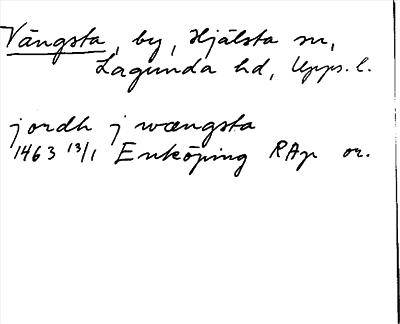 Vängsta, by, Hjälsta sn,
Lagunda hd, Upps. l.
jordh j wængsta
1463 13/1 Enköping RAp or.